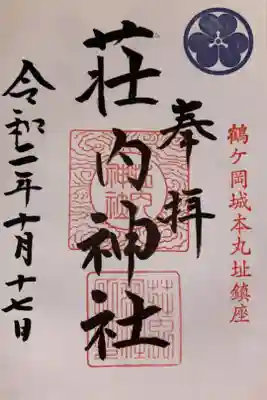 鶴ヶ岡城本丸址鎮座
奉拝
荘内神社
令和二年十月十七日